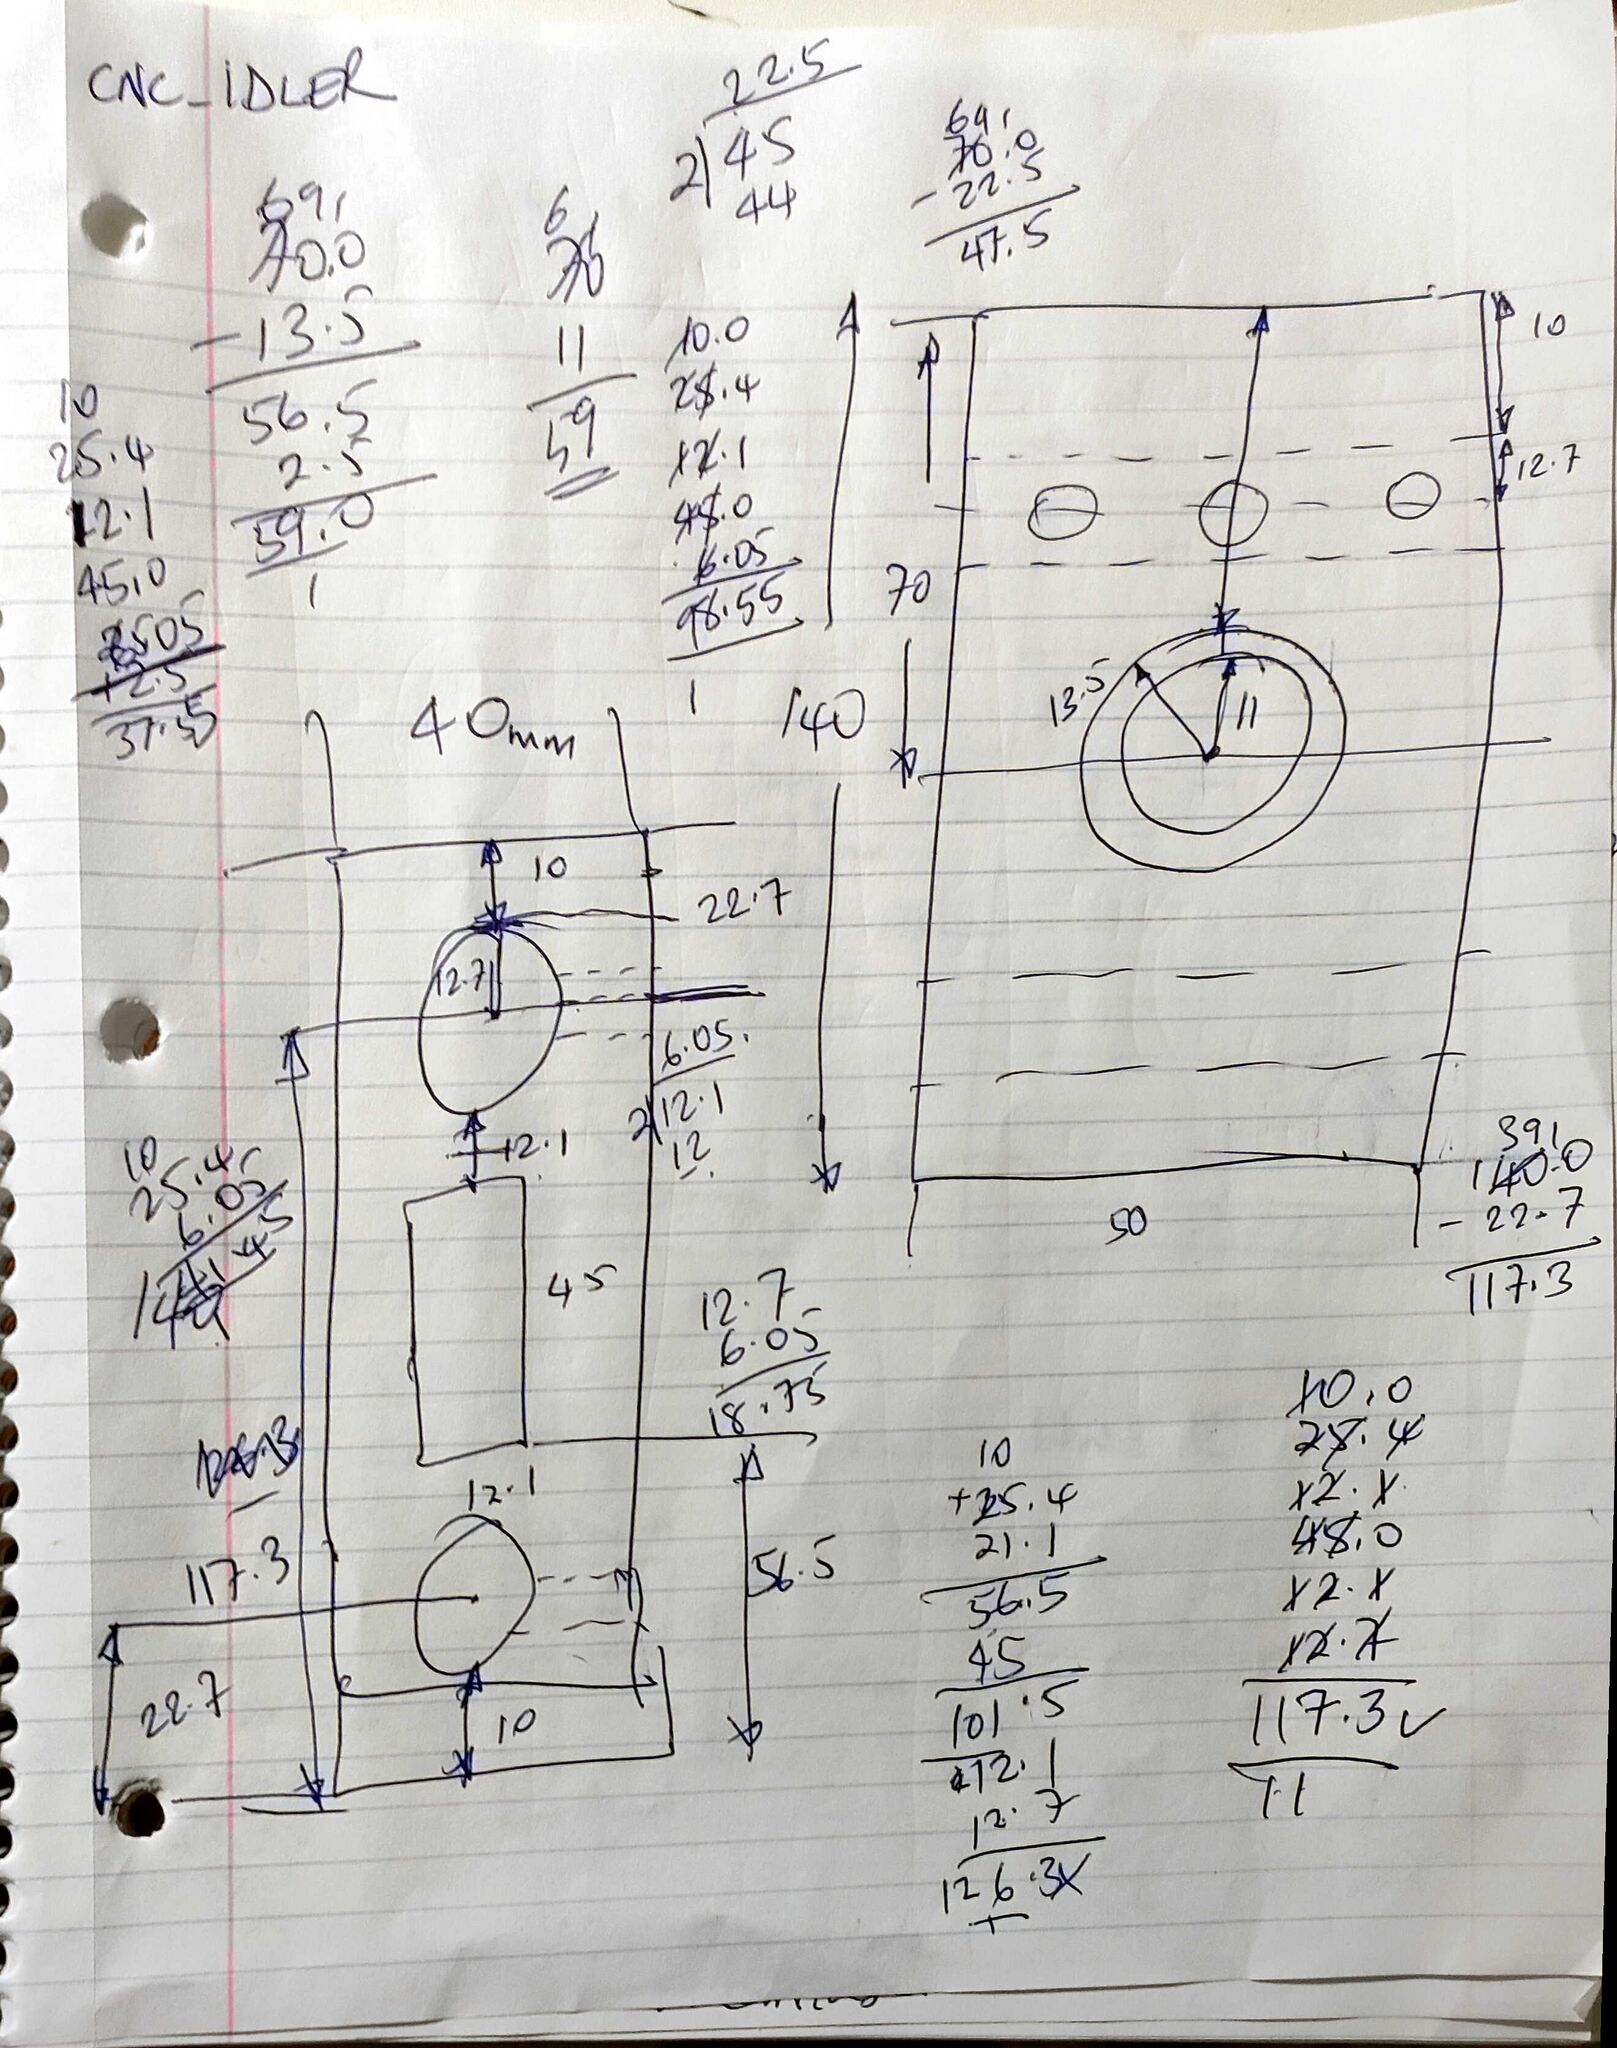 CNC_IDLER
22.5
2)45
44
69,
70.0
-13.5
56.5
2.5
59.0
1
6
70
11
59
69,
70.0
-22.5
47.5
10
25.4
12.1
45.0
37.55
10.0
25.4
12.1
45.0
6.05
98.55
1
10
12.7
70
140
13.5
11
50
40mm
10
22.7
12.7
6.05.
2)12.1
12
12.1
10
25.4
6.05
45
12.7
6.05
18.75
12.1
117.3
56.5
22.7
10
39,
140.0
-22.7
117.3
10
+25.4
21.1
56.5
45
101.5
12.1
12.7
126.3
10.0
25.4
12.1
45.0
12.1
12.7
117.3✓
11